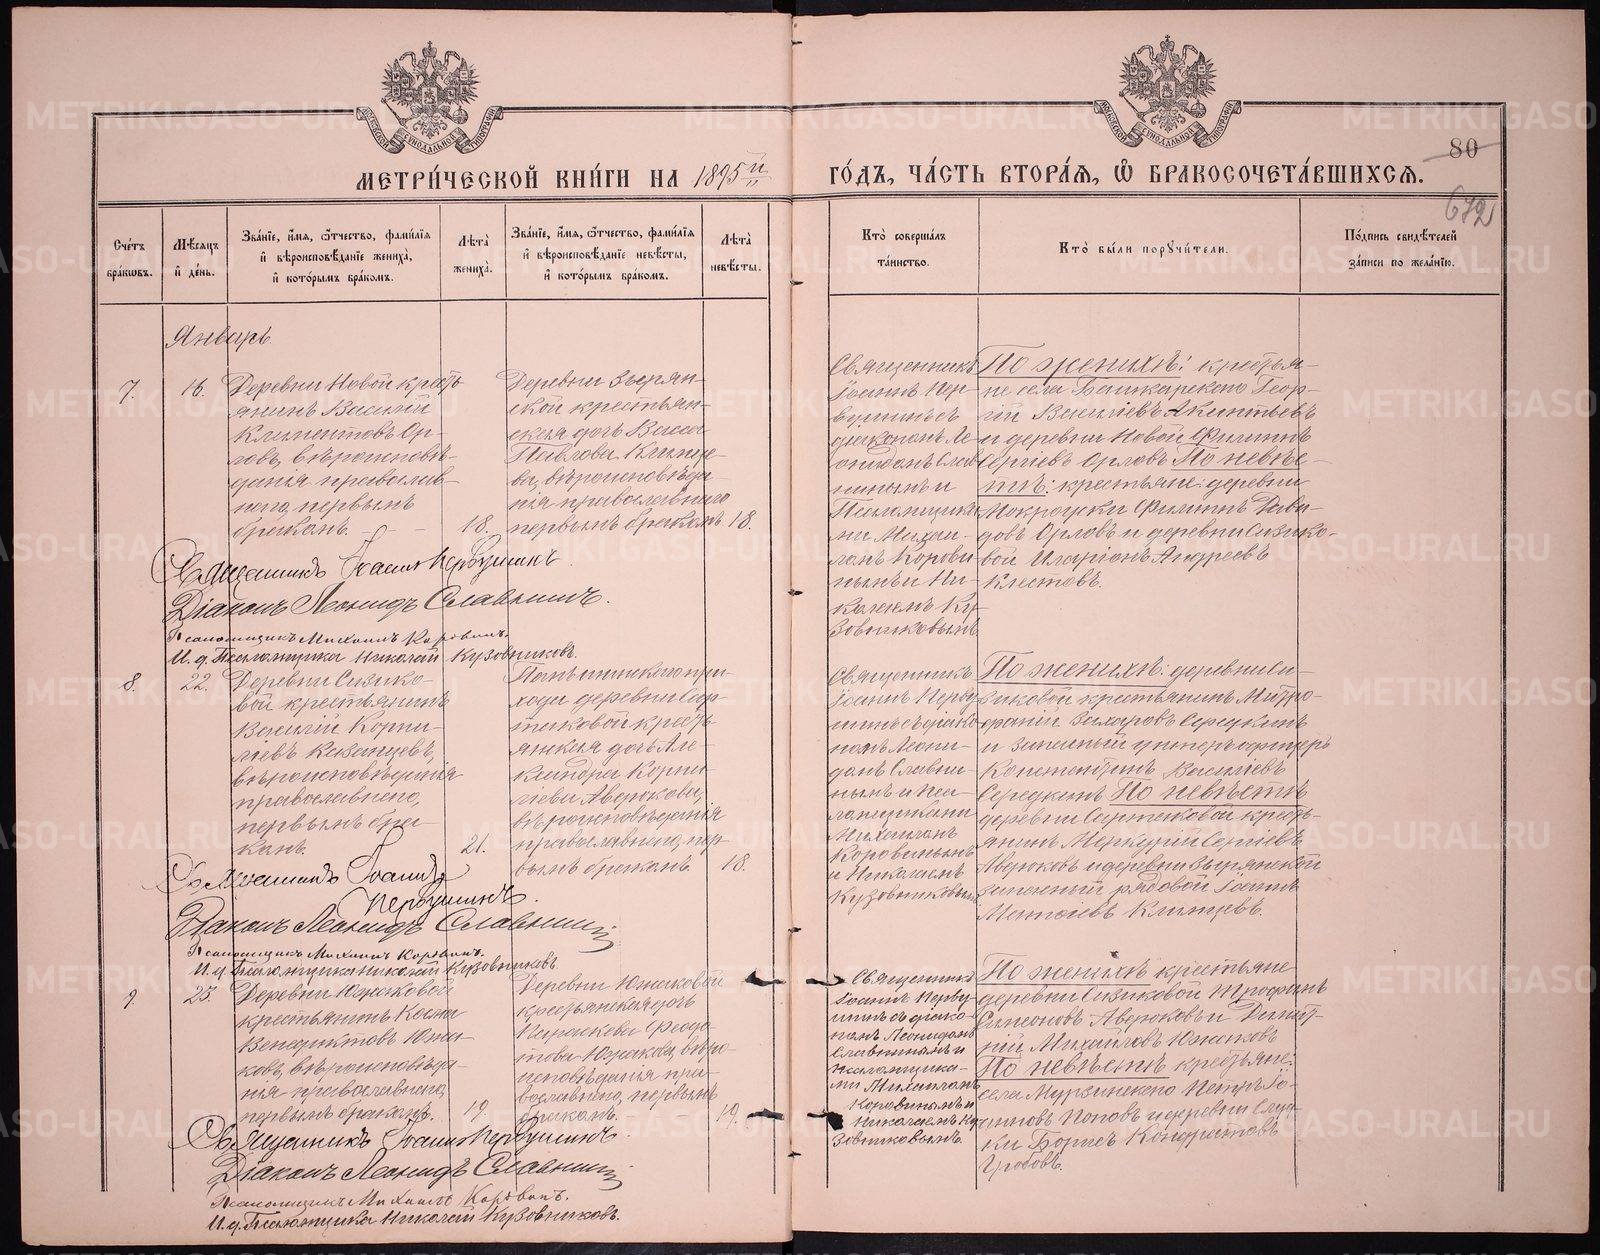 МЕТРИ́ЧЕСКОЙ КНИ́ГИ НА 1895й ГО́ДЪ, ЧА́СТЬ ВТОРА́Я, Ѽ БРАКОСОЧЕТА́ВШИХСЯ.
80
672
Сче́тъ бра́кωвъ.
Мѣ́сяцъ и҆ де́нь.
Зва́нїе, и҆́мя, ѻ҆́тчество, фамил́їя и҆ вѣроисповѣ́данїе жениха̀, и҆ кото́рымъ бра́комъ.
Лѣ́та жениха̀.
Зва́нїе, и҆́мя, ѻ҆́тчество, фами́лїя и҆ вѣроисповѣ́данїе невѣ́сты, и҆ кото́рымъ бра́комъ.
Лѣ́та невѣ́сты.
Кто̀ соверша́лъ та́инство.
Кто̀ бы́ли порꙋчи́тели.
По́дпись свидѣ́телей за́писи по жела́нїю.
Январь.
7.
16.
Деревни Новой кресть
янинъ Василій
Климентовъ Ор-
ловъ, вѣроисповѣ-
данія православ-
наго, первымъ
бракомъ.
18.
Деревни Зырян-
ской крестьян-
ская дочь Васса
Павлова Клевце-
ва, вѣроисповѣда-
нія православнаго
первымъ бракомъ
18.
Священникъ
Іоаннъ Пер-
вушинъ съ
діакономъ Ле-
онидомъ Слав-
нинымъ и
Псаломщика-
ми Михаи-
ломъ Корови-
нымъ и Ни-
колаемъ Ку-
зовниковымъ
По женихѣ: крестья-
не села Башкарскаго Геор-
гій Васильевъ Акинтьевъ
и деревни Новой Филиппъ
Сергіевъ Орловъ По невѣс-
тѣ: крестьяне: деревни
Покровски Филиппъ Дави-
довъ Орловъ и деревни Сизико-
вой Иларіонъ Андреевъ
Клестовъ.
Священникъ Іоаннъ Первушинъ
Діаконъ Леонидъ Славнинъ.
Псаломщикъ Михаилъ Коровинъ.
И. д. Псаломщика Николай Кузовниковъ.
8.
22.
Деревни Сизико-
вой крестьянинъ
Василій Корни-
ліевъ Казанцевъ,
вѣроисповѣданія
православнаго,
первымъ бра-
комъ.
21.
прихода
деревни Сар-
таковой кресть
янская дочь Але-
ксандра Корни-
ліева Авдюкова,
вѣроисповѣданія
православнаго, пер-
вымъ бракомъ.
18.
Священникъ
Іоаннъ Перву-
шинъ съ діако-
номъ Леони-
домъ Славни-
нымъ и пса-
ломщиками
Михаиломъ
Коровинымъ
и Николаемъ
Кузовниковымъ
По женихѣ: деревни Си-
зиковой крестьянинъ Митро-
фаній Захаровъ Середкинъ
и запасный унтеръ офицеръ
Константинъ Василіевъ
Середкинъ По невѣстѣ
деревни Сартаковой кресть-
янинъ Меркурій Сергіевъ
Авдюковъ и деревни Зырянской
запасный рядовой Іоаннъ
Матѳіевъ Клевцевъ.
Священникъ Іоаннъ
Первушинъ.
Діаконъ Леонидъ Славнинъ
Псаломщикъ Михаилъ Коровинъ.
И. д. Псаломщика Николай Кузовниковъ.
9.
23.
Деревни Южаковой
крестьянинъ Косма
Венедиктовъ Южа-
ковъ, вѣроисповѣда-
нія православнаго,
первымъ бракомъ.
19.
Деревни Южаковой
крестьянская дочь
Параскева Ѳеодо-
това Южакова, вѣро-
исповѣданія пра-
вославнаго, первымъ
бракомъ.
19.
Священникъ
Іоаннъ Перву-
шинъ съ діако-
номъ Леонидомъ
Славнинымъ и
псаломщика-
ми Михаиломъ
Коровинымъ и
Николаемъ Ку-
зовниковымъ.
По женихѣ крестьяне
деревни Сизиковой Трофимъ
Симеоновъ Авдюковъ и Димит-
рій Михайловъ Южаковъ
По невѣстѣ крестьяне:
села Мурзинскаго Петръ Іо-
анновъ Поповъ и деревни
Борисъ Кондратовъ
Священникъ Іоаннъ Первушинъ.
Діаконъ Леонидъ Славнинъ
Псаломщикъ Михаилъ Коровинъ.
И. д. Псаломщика Николай Кузовниковъ.
METRIKI.GASO-URAL.RU